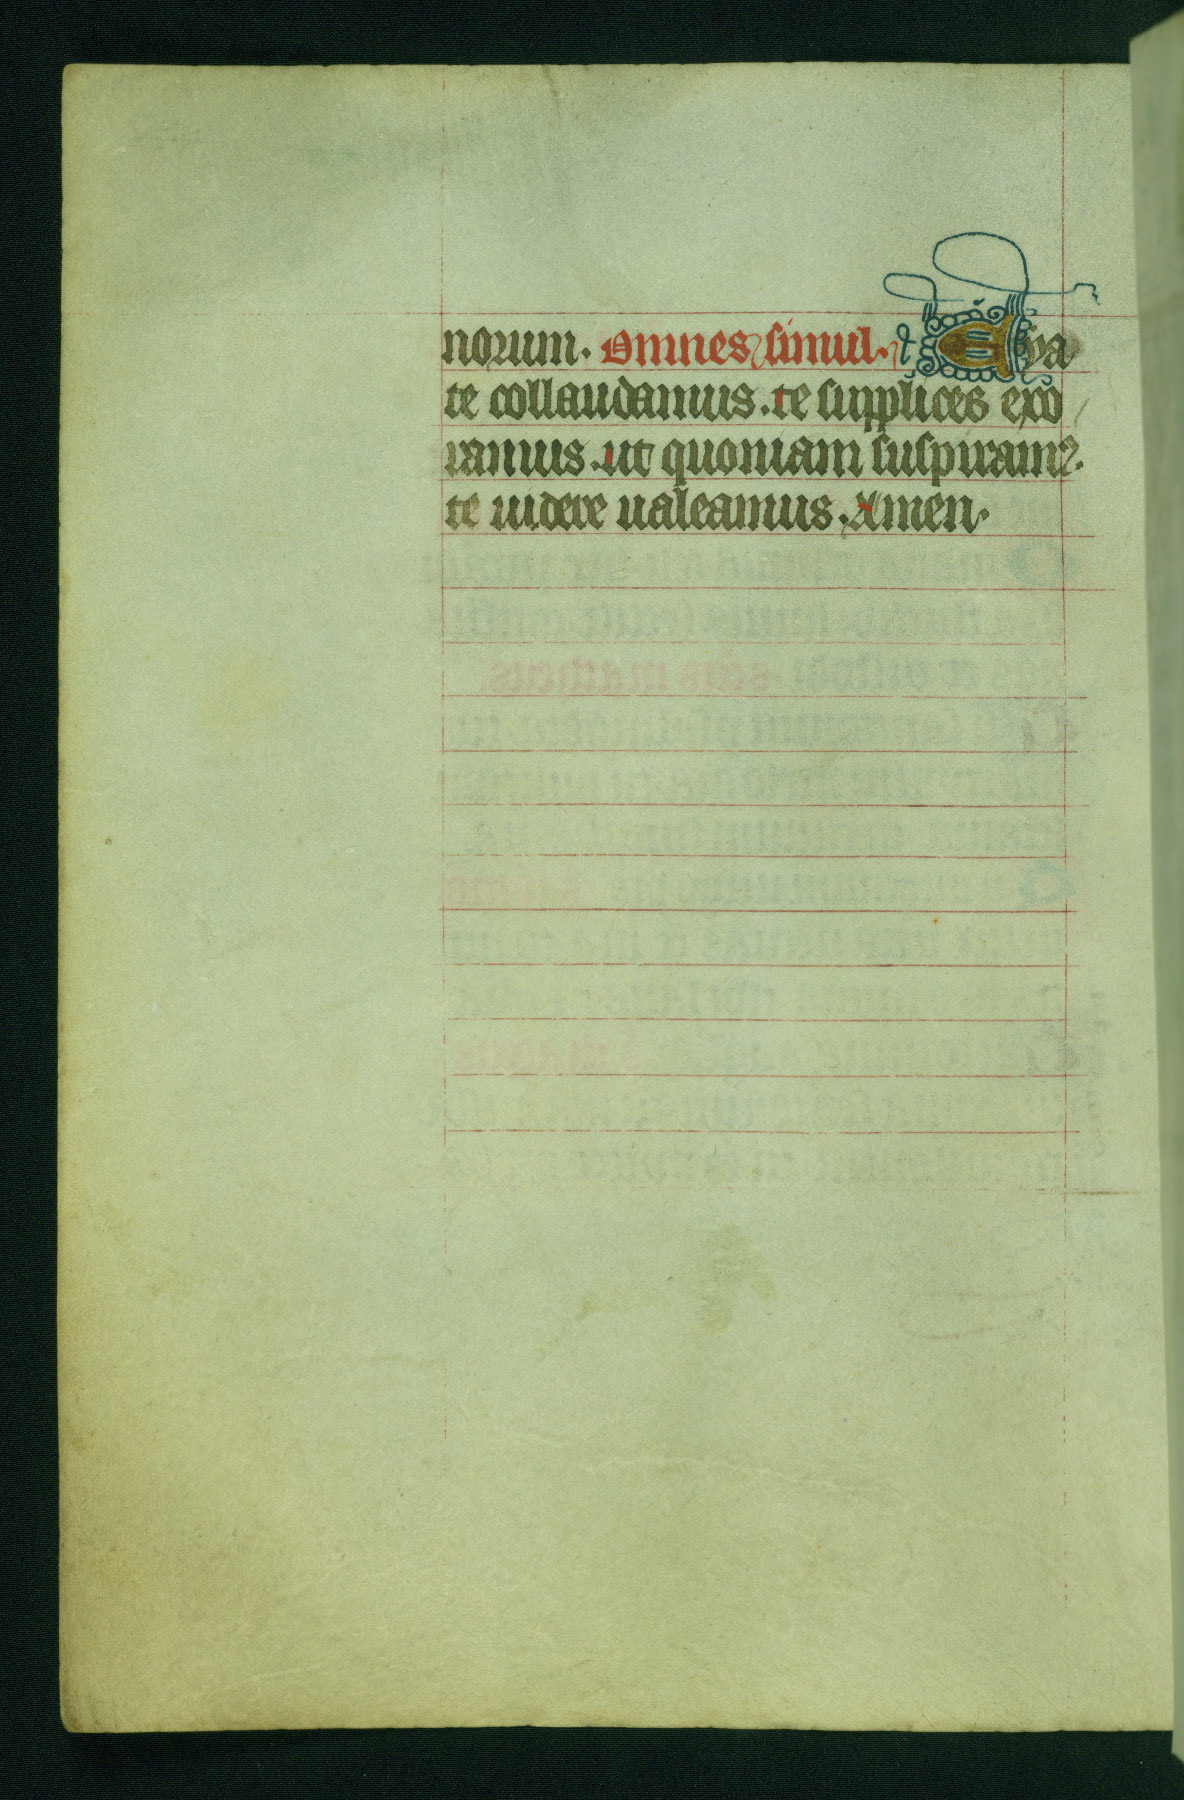 norum. Omnes simul. Eya
te collaudamus. te supplices exo
ramus. ut quoniam suspiram⁹.
te uidere ualeamus. Amen.